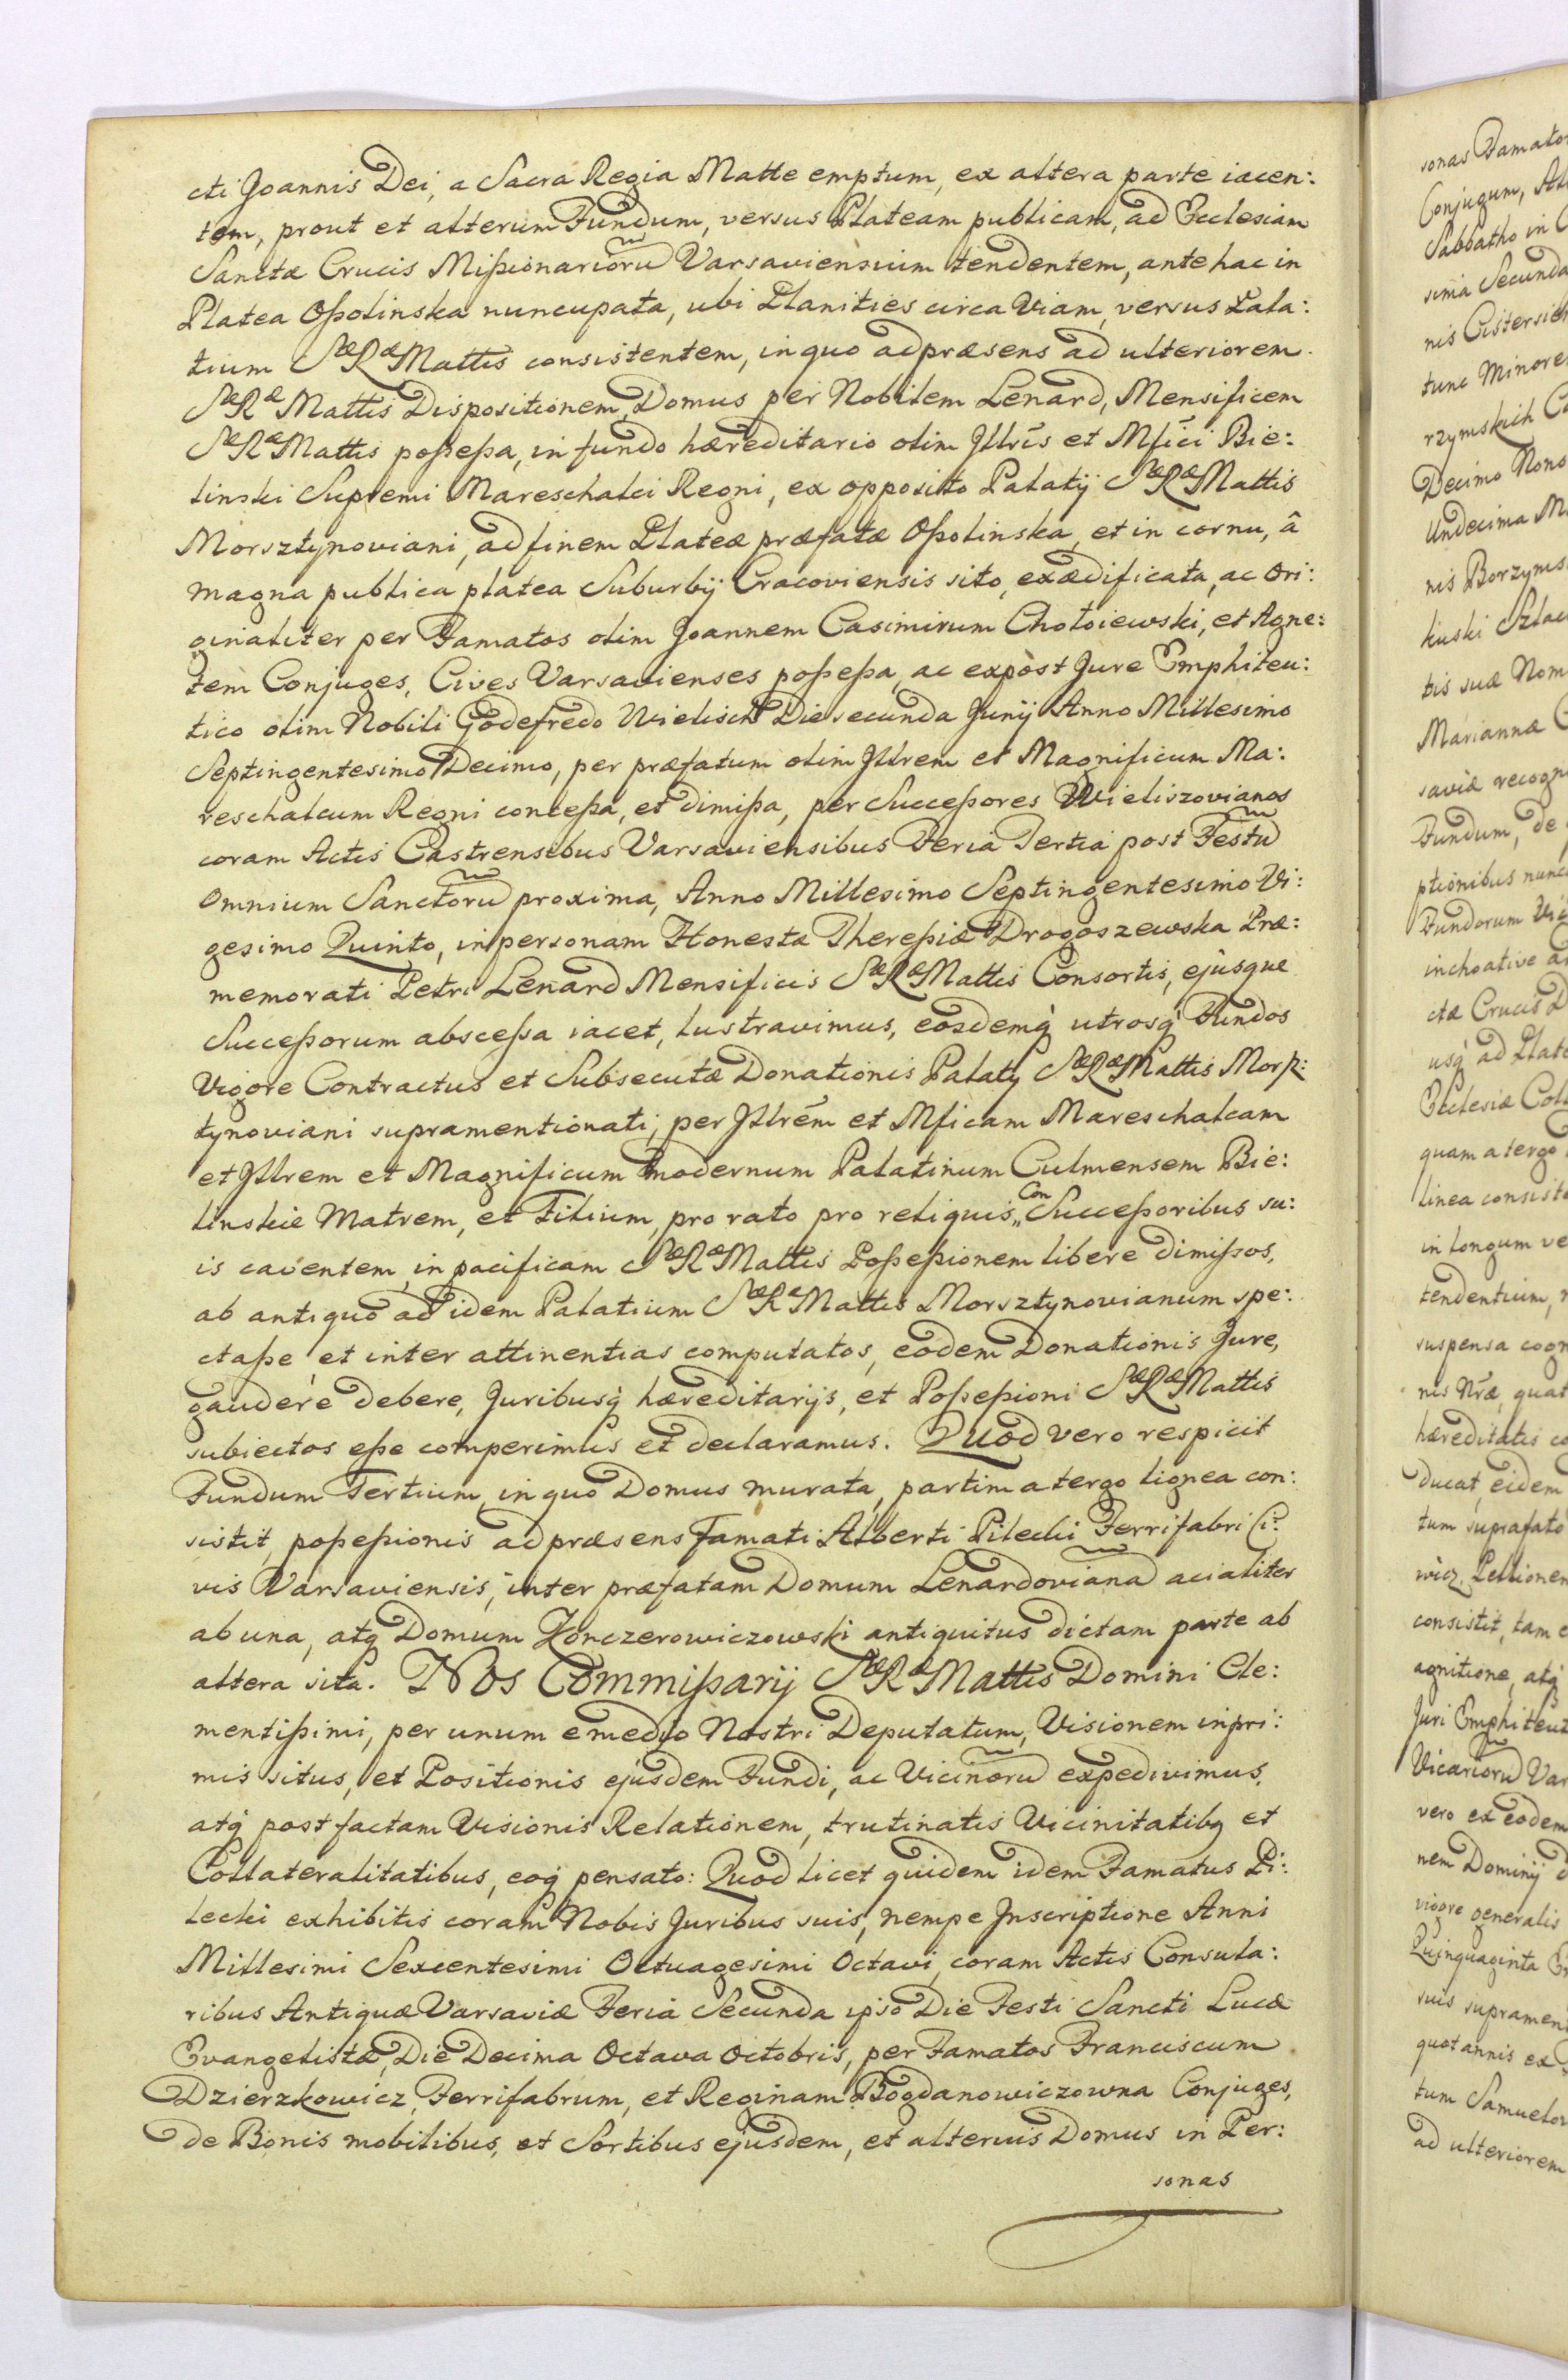 cti Joannis Dei, a Sacra Regia Matte emptum, ex altera parte iacen:
tem, prout et alterum Fundum, versus Plateam publicam, ad Ecclesiam
Sanctæ Crucis Mißionarioru Varsaviensium tendentem, ante hac in
Platea Oßolinska nuncupata, ubi Planities circa Viam, versus Pala:
tium SæRæ Mattis consistentem, in quo ad præsens ad ulteriorem
SæRæ Mattis Dispositionem, Domus per Nobilem Lenard, Mensificem
SæRæ Mattis poßeßa, in fundo hæreditario olim Jllris et Mfici Bie:
linski Supremi Mareschalci Regni, ex opposito Palatij SæRæ Mattis
Morsztynoviani, ad finem Plateæ præfatæ Oßolinska, et in cornu, â
magna publica platea Suburbij Cracoviensis sito, exædificata, ac Ori:
ginaliter per Famatos olim Joannem Casimirum Chołoiewski, et Agne:
tem Conjuges, Cives Varsavienses poßeßa, ac expost Jure Emphiteu:
tico olim Nobili Godefredo Wielisch Die secunda Junij Anno Millesimo
Septingentesimo Decimo, per præfatum olim Jllrem et Magnificum Ma:
reschalcum Regni conceßa, et dimißa, per Succeßores Wieliszovianos
coram Actis Castrensibus Varsaviensibus Feria Tertia post Festu
Omnium Sanctoru proxima, Anno Millesimo Septingentesimo Vi:
gesimo Quinto, in personam Honestæ Thereßiæ Drogoszewska Præ:
memorati Petri Lenard Mensificis SæRæ Mattis Consortis, ejusque
Succeßorum absceßa iacet, lustravimus, eosdemq utrosq Fundos
Vigore Contractus et Subsecutæ Donationis Palaty SæRæ Mattis Morß:
tynoviani supramentionati, per Jllrem et Mficam Mareschalcam
et Jllrem et Magnificum modernum Palatinum Culmensem Bie:
linskie Matrem, et Filium, pro rato pro reliquis Con Succeßoribus su:
is caventem, in pacificam SæRæ Mattis Poßeßionem libere dimißos,
ab antiquo ad idem Palatium SæRæ Mattis Morsztynovianum spe:
ctaße et inter attinentias computatos, eodem Donationis Jure,
gaudere debere, Juribusq hæreditarijs, et Poßeßioni SæRæ Mattis
subiectos eße comperimus et declaramus. Quod vero respicit
Fundum Tertium, in quo Domus murata, partim a tergo lignea con:
sistit, poßeßionis ad præsens Famati Alberti Pilecki Ferrifabri Ci:
vis Varsaviensis, inter præfatam Domum Lenardoviana acialiter
ab una, atq Domum Zonczerowiczowski antiquitus dictam parte ab
altera sita. Nos Commißarij SæRæ Mattis Domini Cle:
mentißimi, per unum e medio Nostri Deputatum, Visionem inpri:
mis situs, et Positionis ejusdem Fundi, ac Vicinoru expedivimus,
atq post factam Visionis Relationem, trutinatis Vicinitatibq et
Collateralitatibus, eoq pensato: Quod licet quidem idem Famatus Pi:
lecki exhibitis coram Nobis Juribus suis, nempe Jnscriptione Anni
Millesimi Sexcentesimi Octuagesimi Octavi, coram Actis Consula:
ribus Antiquæ Varsaviæ Feria Secunda ipso Die Festi Sancti Lucæ
Evangelistæ, Die Decima Octava Octobris, per Famatos Franciscum
Dzierzkowicz, Ferrifabrum, et Reginam Bogdanowiczowna Conjuges,
de Bonis mobilibus, et Sortibus ejusdem, et alterius Domus in Per:
sonas
sonas Famato
Conjugum, Al
Sabbatho in C
sima Secunda
nis Cistersien
tunc Minore
rzymskich C
Decimo Nono
Undecima M
nis Borzyms
kiuski Szlac
tis suæ Nom
Mariannæ C
saviæ recogn
Fundum, de
ptionibus nunc
Fundorum Vi
inchoative a
ctæ Crucis D
usq ad Plate
Ecclesiæ Col
quam a tergo
linea consiste
in longum ve
tendentium,
suspensa cogn
nis Nræ, quat
hæreditatis co
ducat, eidem
tum suprafato
wicz, Pellionem
consistit, tam e
agnitione, atq
Juri Emphiteut
Vicarioru Var
vero ex eodem
nem Dominij d
vigore generalis
Quinquaginta
suis supramen
quotannis ex
tum Samuelo
ad ulteriorem